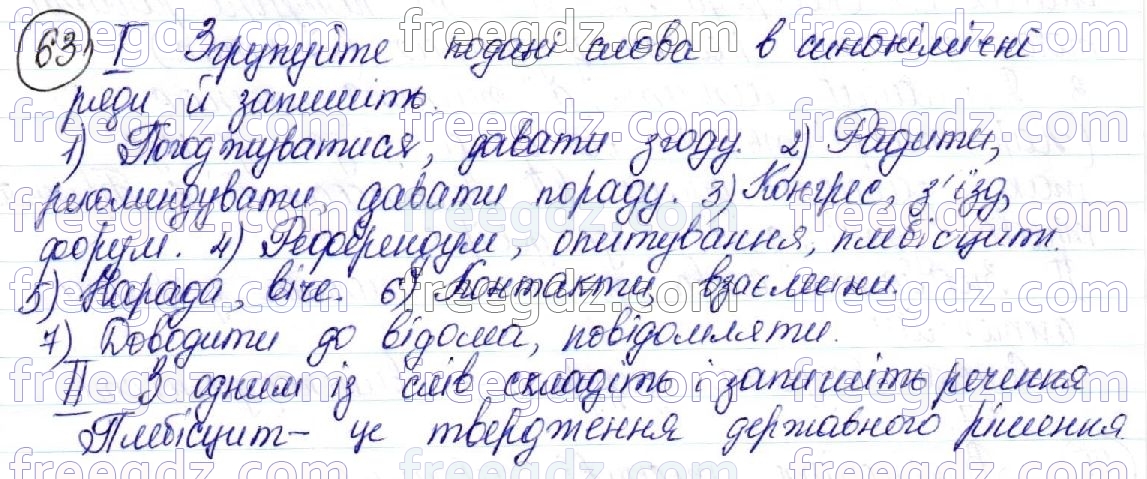 63) І Згрупуйте подані слова в синонімічні
ряди й запишіть.
1) Погоджуватися, давати згоду. 2) Радити,
рекомендувати, давати пораду. 3) Конгрес, з'їзд,
форум. 4) Референдум, опитування, плебісцит.
5) Нарада, віче. 6) Контакти, взаємини.
7) Доводити до відома, повідомляти.
ІІ З одним із слів складіть і запишіть речення
Плебісцит – це твердження державного рішення.